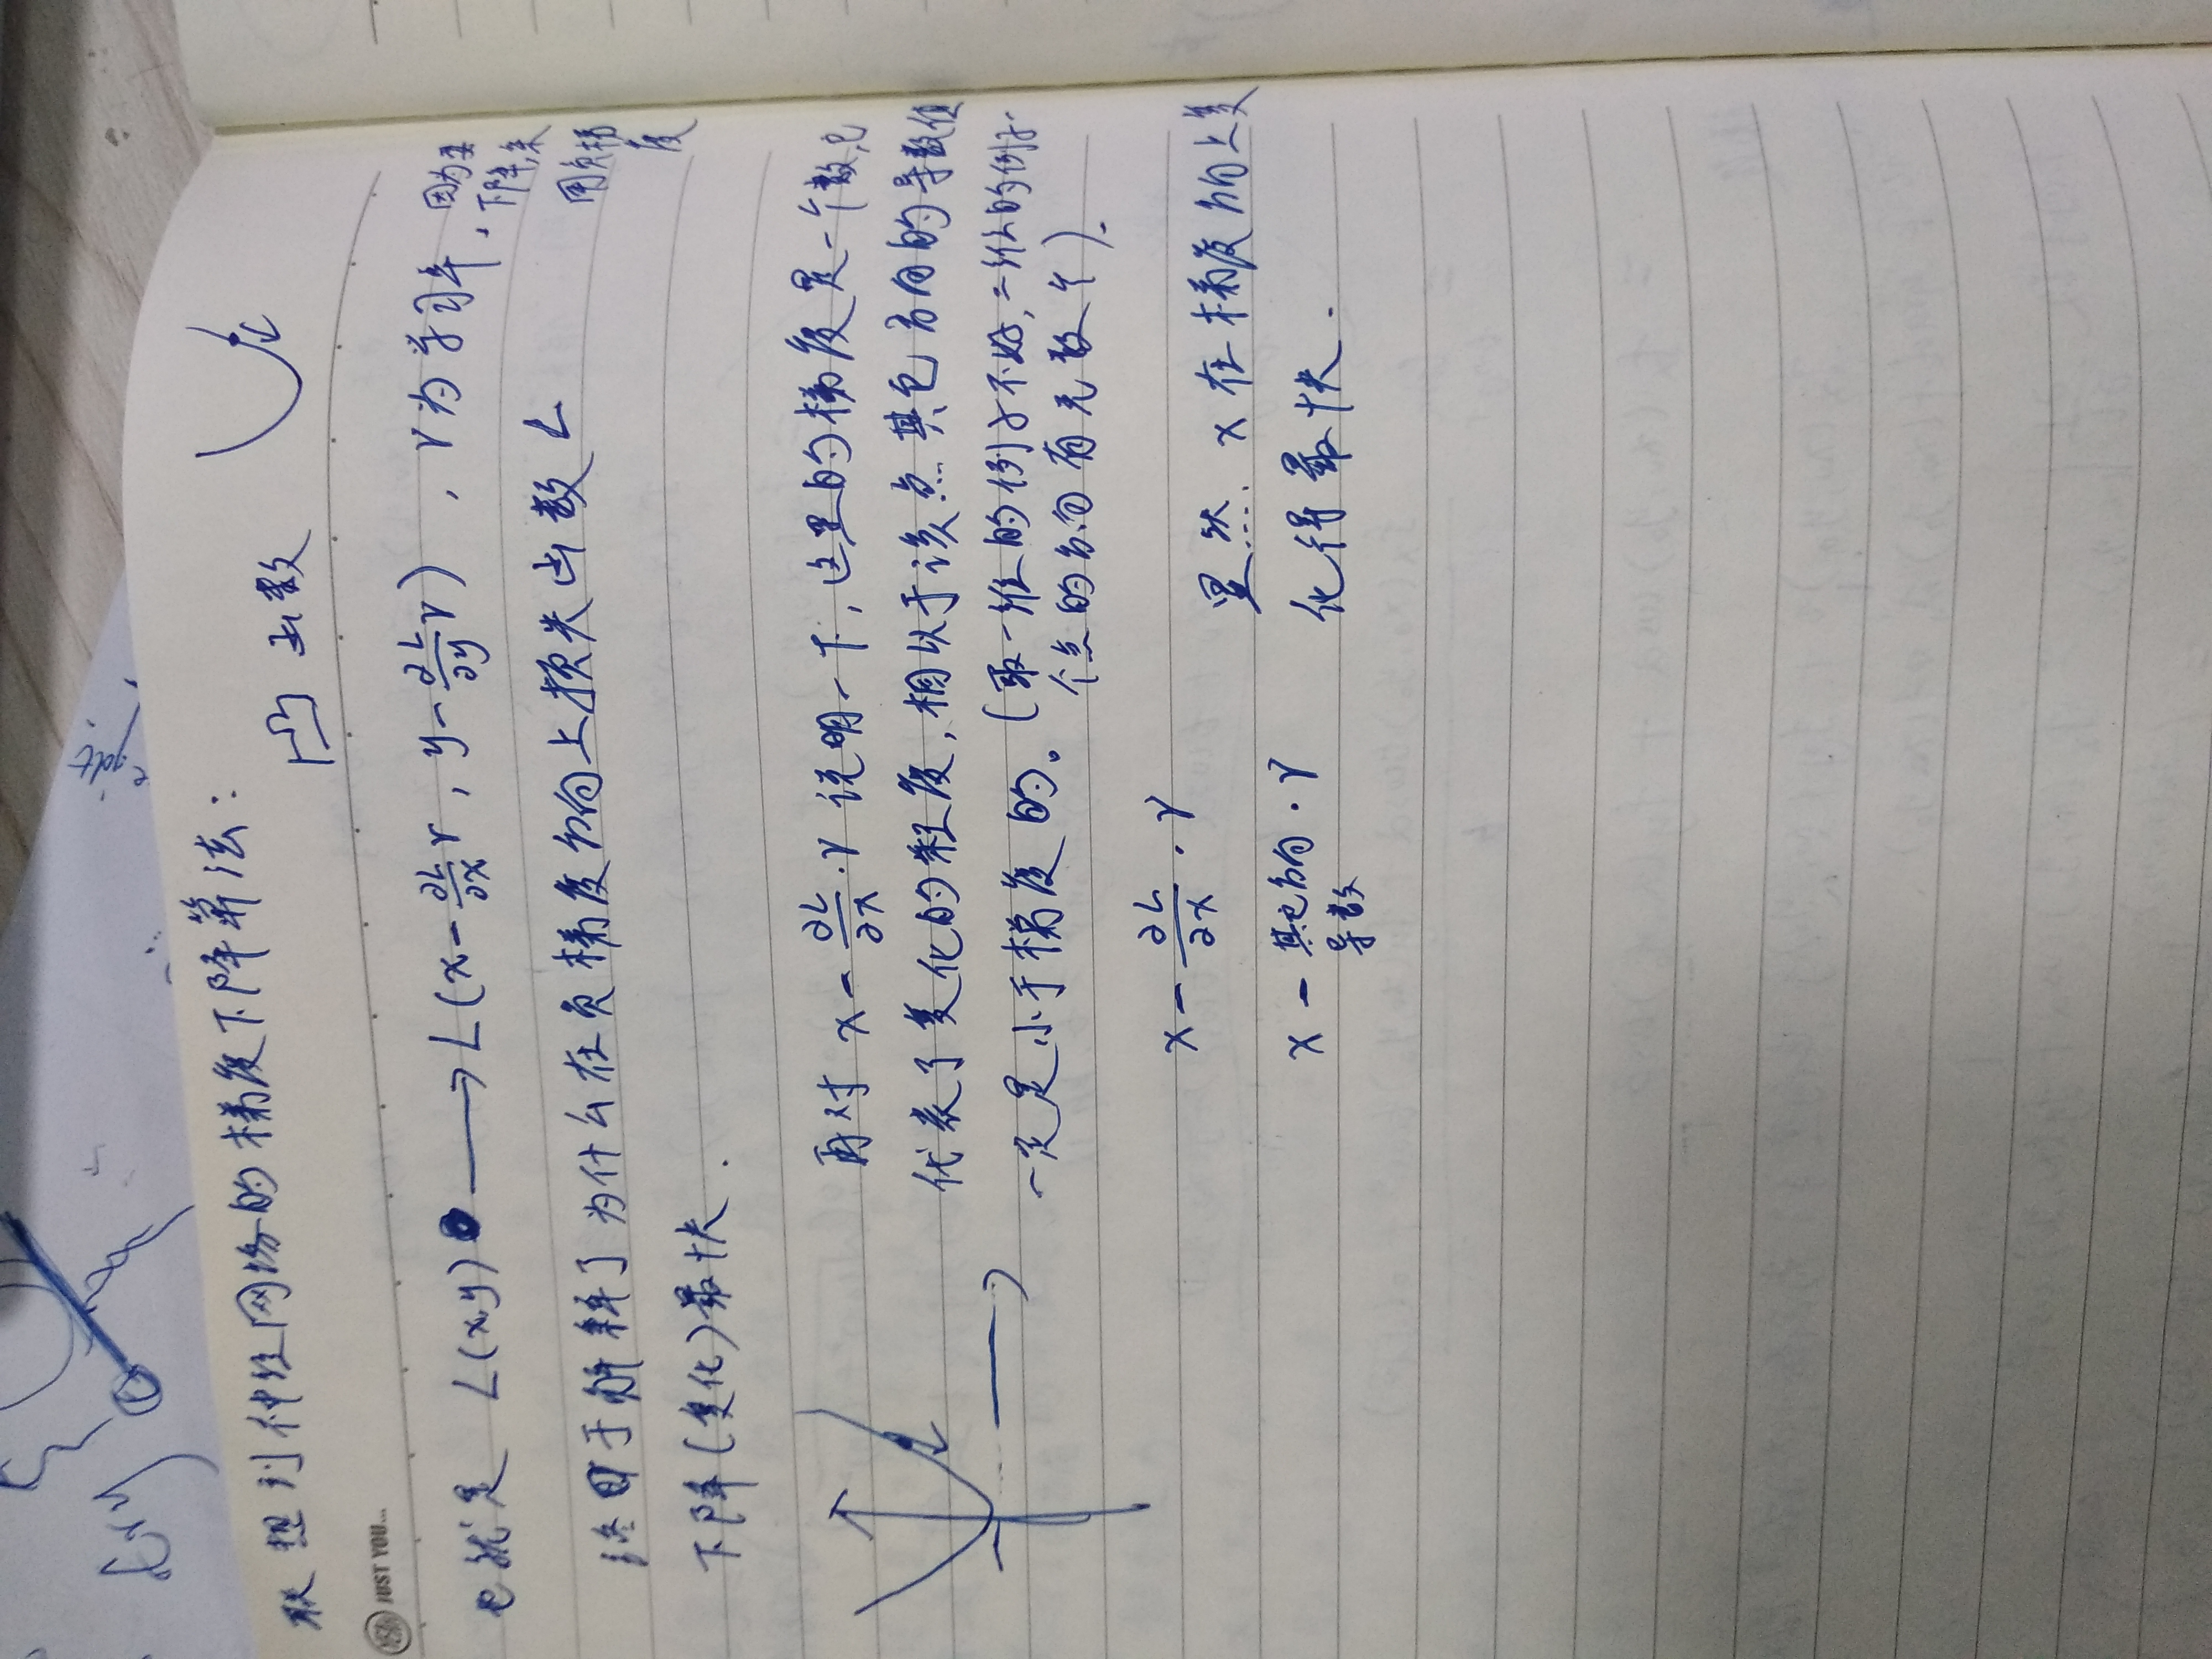 try
联想到神经网络的梯度下降算法：
凸函数
JUST YOU...
也就是 L(x,y) ⟶ L(x-∂L/∂x r, y-∂L/∂y r), r为学习率.
因为要
下降,采
用负梯
度
终于解释了为什么在负梯度方向上损失函数L
下降(变化)最快.
再对 x-∂L/∂x·r 说明一下,这里的梯度是一个数,它
代表了变化的程度,相似于该点其它方向的导数值
一定是小于梯度的。(取一维的例子不好,二维的例子一
个点的方向有无数个).
x-∂L/∂x·r
显然 x在梯度方向上变
x-其它方向导数·r
化得最快.